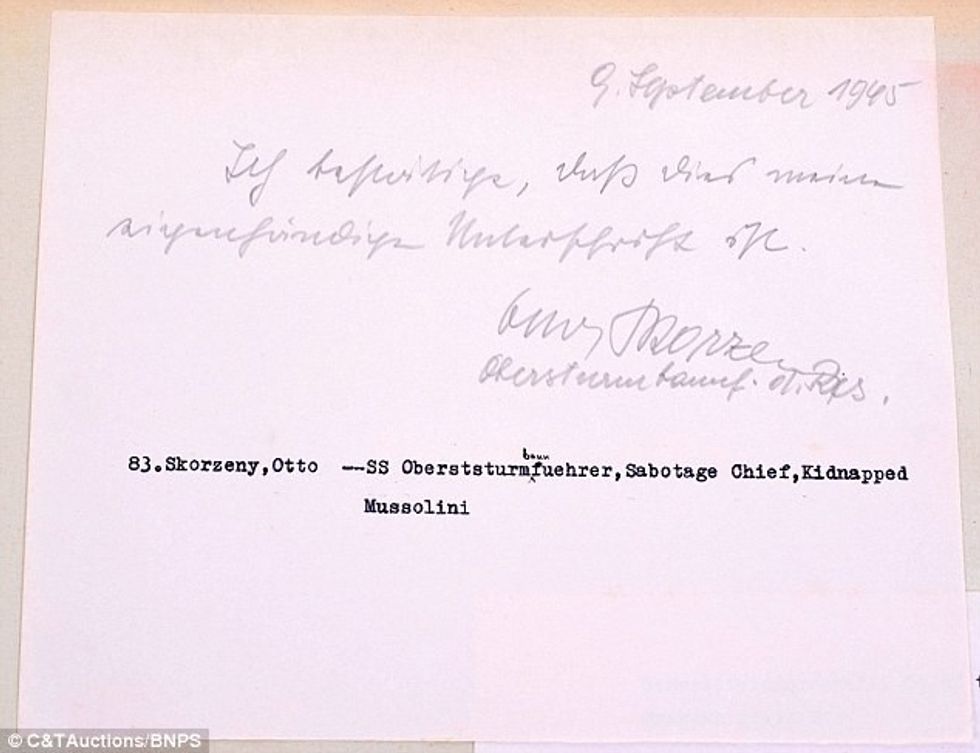 9. September 1945
Ich bestätige, daß dies meine
eigenhändige Unterschrift ist.
Skorzeny
Obersturmbannf. d. Res.
baun
83.Skorzeny,Otto —SS Oberststurmfuehrer,Sabotage Chief,Kidnapped
Mussolini
© C&TAuctions/BNPS